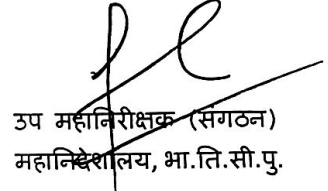 उप महानिरीक्षक (संगठन)
महानिदेशालय, भा.ति.सी.पु.